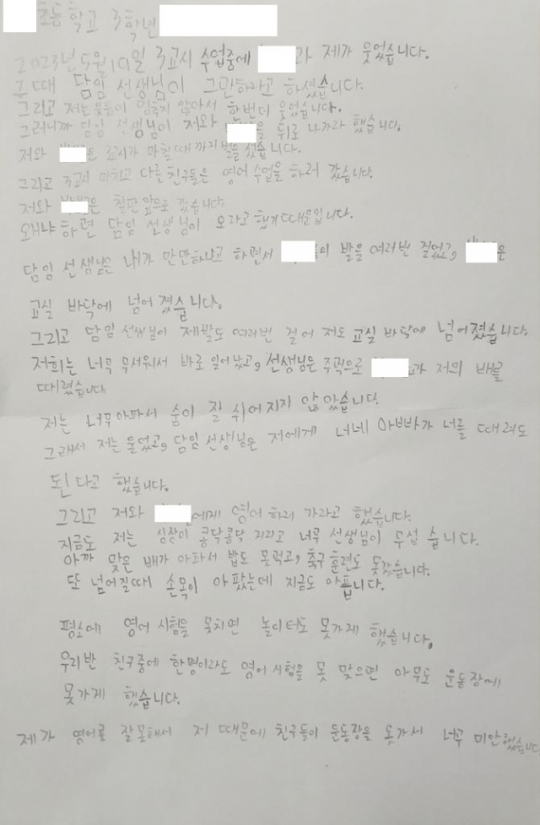 초등학교 3학년
2023년 5월 19일 3교시 수업중에 과 제가 웃었습니다.
그때 담임 선생님이 그만하라고 하셨습니다.
그리고 저는 웃음이 멈추지 않아서 한번더 웃었습니다.
그러니까 담임 선생님이 저와 을 뒤로 나가라 했습니다.
저와 은 교시가 마칠때까지 벌을 섰습니다.
그리고 3교시 마치고 다른 친구들은 영어 수업을 하러 갔습니다.
저와 은 칠판 앞으로 갔습니다.
왜냐하면 담임 선생님이 오라고 했기 때문입니다.
담임 선생님은 내가 만만하냐고 하면서 이 발을 여러번 걸었고, 은
교실 바닥에 넘어졌습니다.
그리고 담임 선생님이 제발도 여러번 걸어 저도 교실 바닥에 넘어졌습니다.
저희는 너무 무서워서 바로 일어났고, 선생님은 주먹으로 과 저의 배를
때렸습니다.
저는 너무 아파서 숨이 잘 쉬어지지 않았습니다.
그래서 저는 울었고, 담임 선생님은 저에게 너네 아빠가 너를 때려도
된다고 했습니다.
그리고 저와 에게 영어 하러 가라고 했습니다.
지금도 저는 심장이 콩닥콩닥 거리고 너무 선생님이 무섭습니다.
아까 맞은 배가 아파서 밥도 못먹고, 축구 훈련도 못갔습니다.
또 넘어질때 손목이 아팠는데 지금도 아픕니다.
평소에 영어 시험을 못치면 놀이터도 못가게 했습니다.
우리반 친구중에 한명이라도 영어 시험을 못 맞으면 아무도 운동장에
못가게 했습니다.
제가 영어를 잘못해서 저 때문에 친구들이 운동장을 못가서 너무 미안했습니다